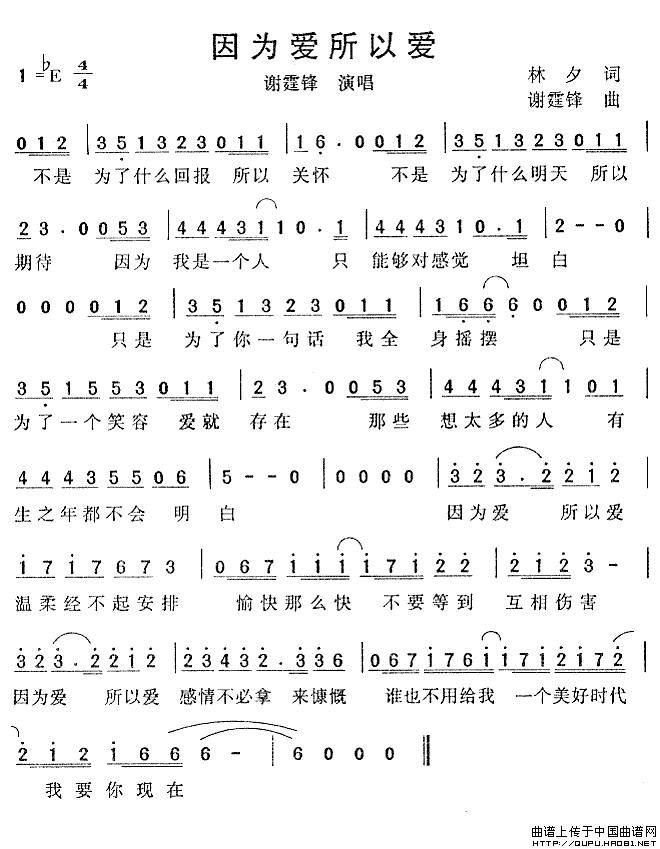 因为爱所以爱
1=♭E 4/4
谢霆锋 演唱
林夕 词
谢霆锋 曲
012 | 351323011 | 16·0012 | 351323011 |
不是 为了什么回报 所以 关怀 不是 为了什么明天 所以
23·0053 | 4443110·1 | 444310·1 | 2--0 |
期待 因为 我是一个人 只 能够对感觉 坦白
000012 | 351323011 | 16660012 |
只是 为了你一句话 我全 身摇摆 只是
351553011 | 23·0053 | 444311101 |
为了一个笑容 爱就 存在 那些 想太多的人 有
44435506 | 5--0 | 0000 | 323·2212 |
生之年都不会 明白 因为爱 所以爱
1717673 | 06711117122 | 2123- |
温柔经不起安排 愉快那么快 不要等到 互相伤害
323·2212 | 23432·336 | 06717611712172 |
因为爱 所以爱 感情不必拿 来慷慨 谁也不用给我 一个美好时代
212166 6- | 6000 ‖
我要你现在
曲谱上传于中国曲谱网
HTTP://QUPU.HAO81.NET